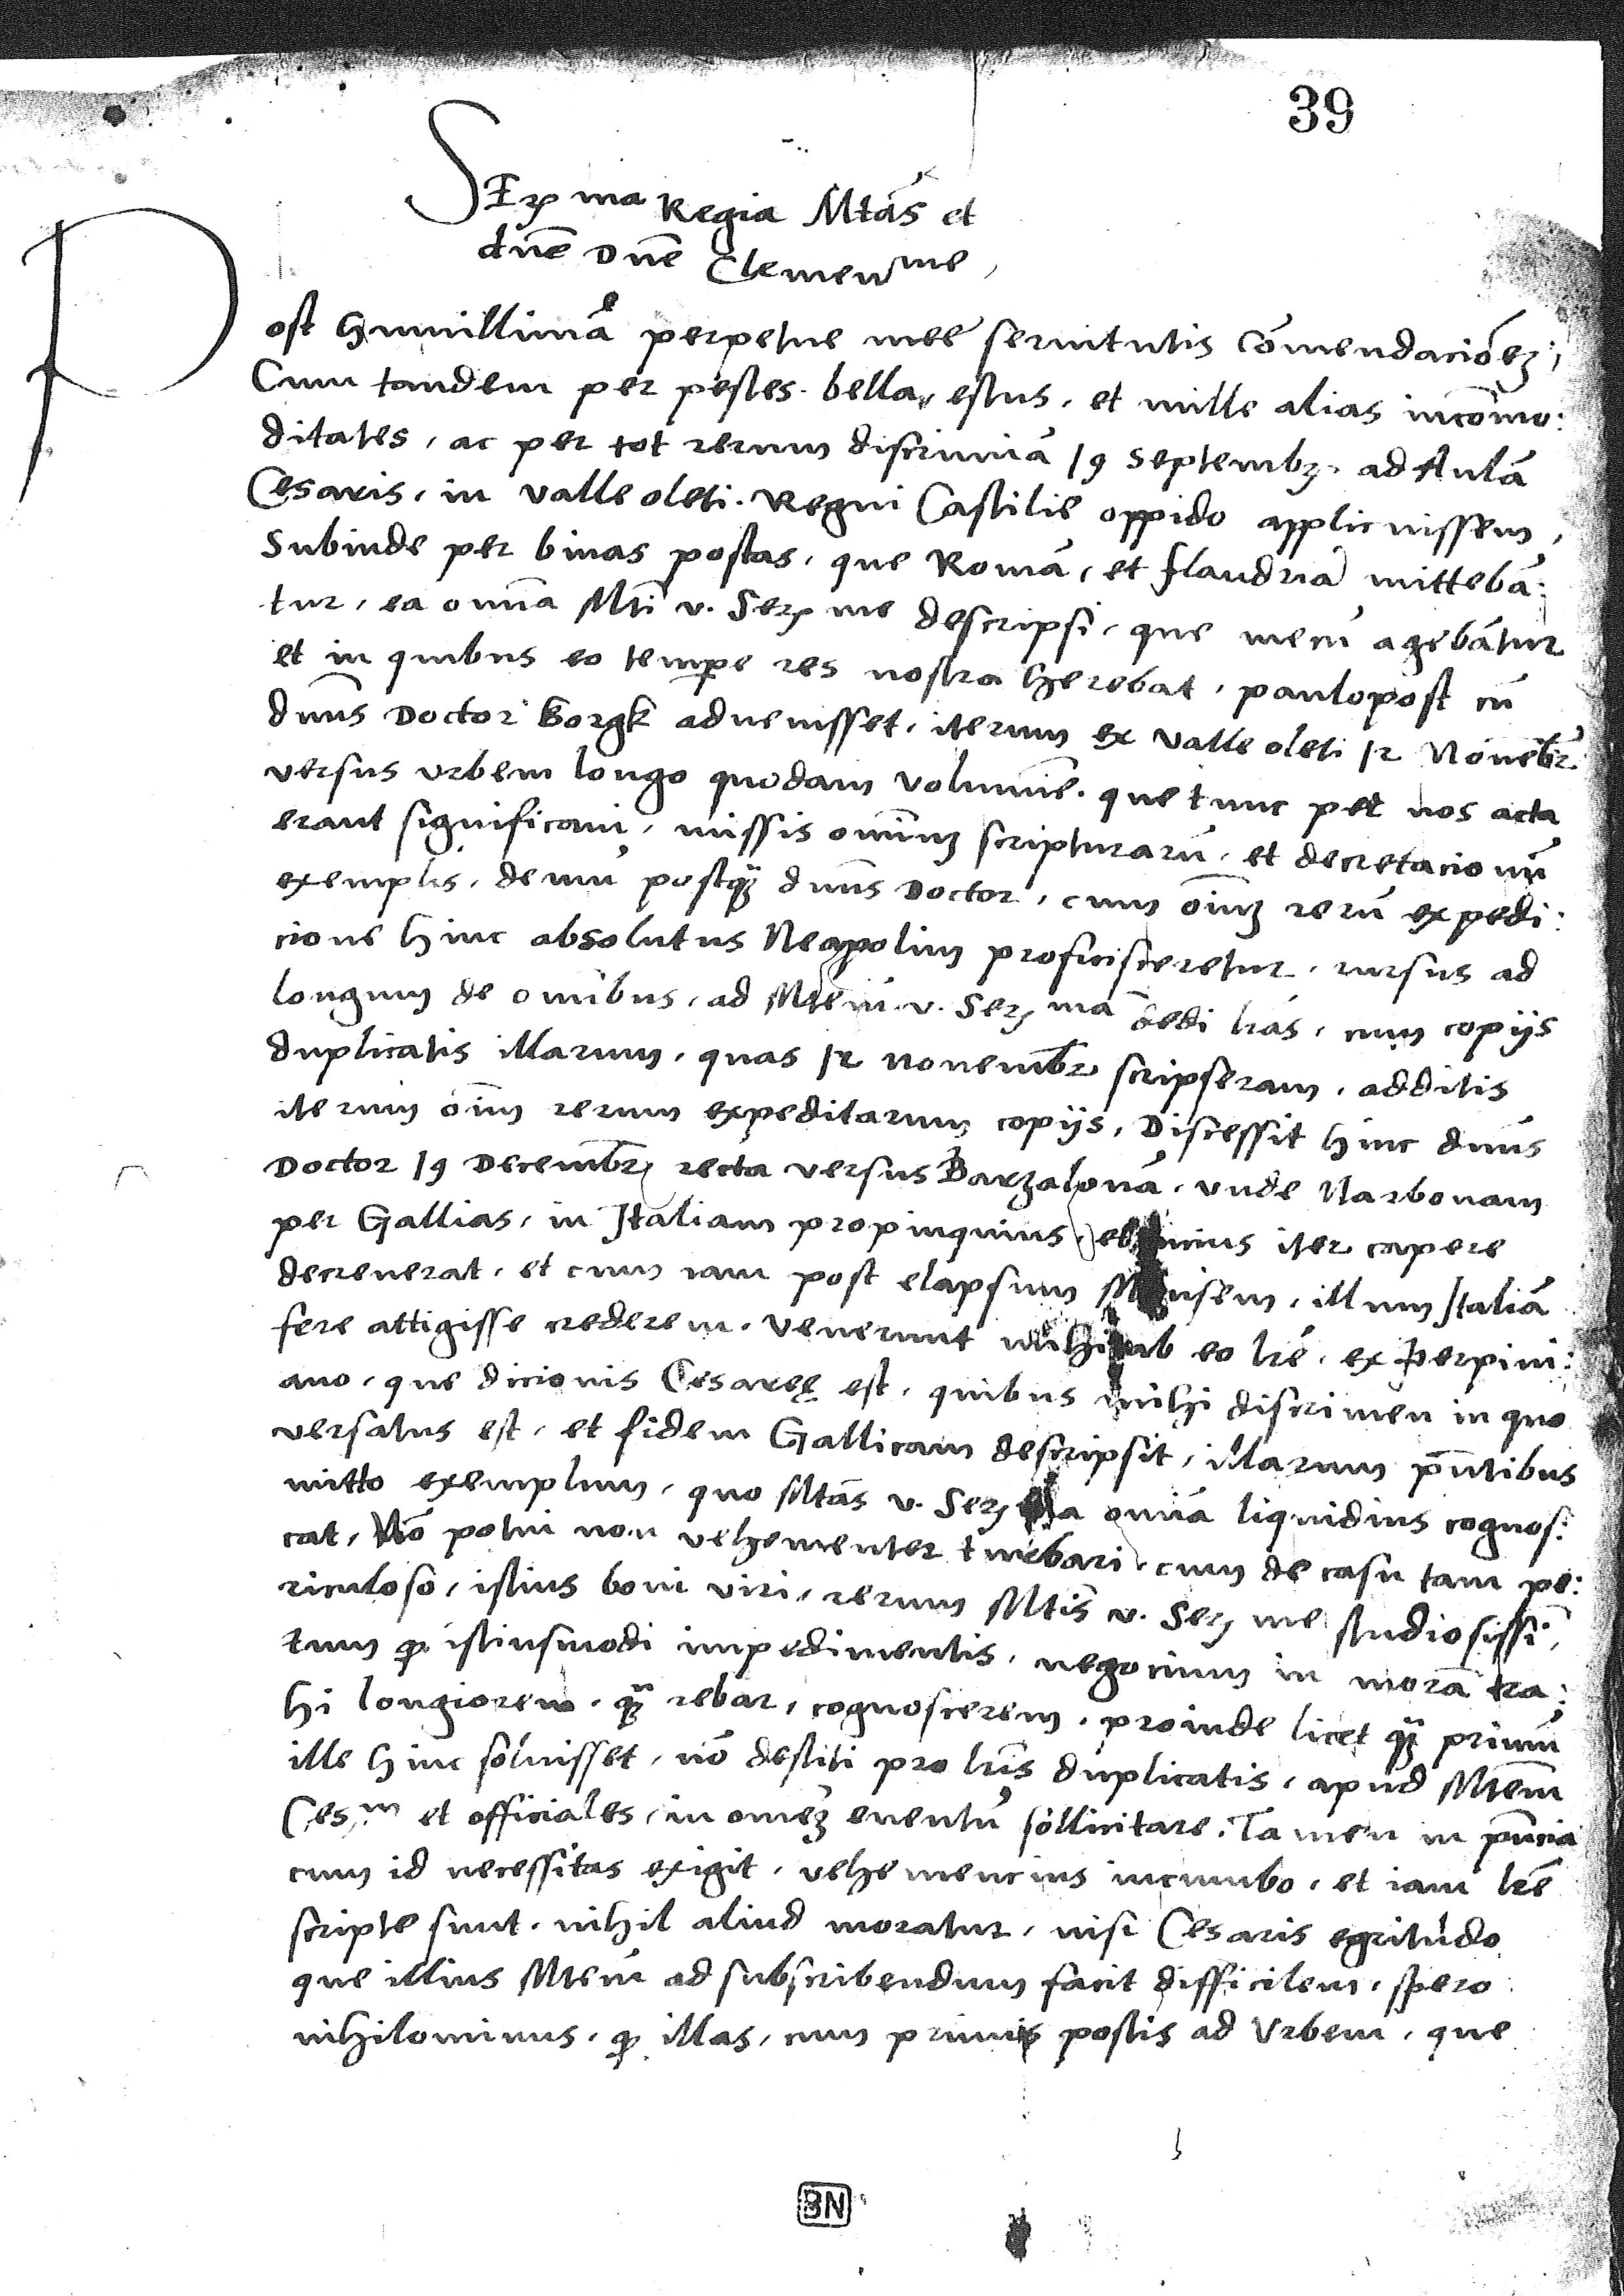 39
Serma Regia Mtas et
dne Dne Clemenme,
Post humillimā perpetue mee seruitutis Cōmendaciōez,
Cum tandem per pestes. bella, estus, et mille alias incōmo:
ditates, ac per tot rerum discrimina 19 septembz. ad Aulā
Cęsaris, in valle oleti. Regni Castilie oppido applicuissem,
Subinde per binas postas, que Romā, et Flandriā mittebā:
tur, ea omīa Mti v. Serme descripsi, que mecū agebātur
et in quibus eo tempe res nostra herebat, paulopost cū
dnus Doctor Borgk aduenisset, iterum ex valle oleti 12 Nouēbr.
versus vrbem longo quodam volumīe. que tunc per nos acta
erant significaui, missis omniuz scripturarū, et decretacionū
exemplis, demū postqz dnus Doctor, cum oīuz rerū expedi:
cione hinc absolutus Neapolim proficisceretur, rursus ad
longum de omībus, ad Mtem v. Serma dedi lras, cum copijs
duplicatis illarum, quas 12 nouembr scripseram, additis
iterum oīm rerum expeditarum copijs, Discessit hinc dnus
Doctor 19 Decembr recta versus Barzalonā, vnde Narbonam
per Gallias, in Italiam propinquius, et ... iter capere
decreuerat, et cum iam post elapsum Mensem, illum Italiā
fere attigisse crederem. venerunt mihi ab eo lre, ex Perpini:
ano, que dicionis Cesareę est, quibus mihi discrimen in quo
versatus est, et fidem Gallicam descripsit, illarum pntibus
mitto exemplum, quo Mtas v. Serma omīa liquidius cognos:
cat, Nō potui non vehementer turbari, cum de casu tam pe:
riculoso, istius boni viri, rerum Mtis v. Serme studiosissī,
tum q istiusmodi impedimentis, negocium in morā tra:
hi longiorem, qz rebar, cognoscerem, proinde licet qz primū
ille hinc soluisset, nō destiti pro lris duplicatis, apud Mtem
Cesm et officiales, in omez euentū sollicitare. Tamen in pncia
cum id necessitas exigit, vehemencius incumbo, et iam lre
scripte sunt, nihil aliud moratur, nisi Cesaris egritudo
que illius Mtem ad subscribendum facit difficilem, spero
nihilominus, q illas, cum primis postis ad Vrbem, que
BN